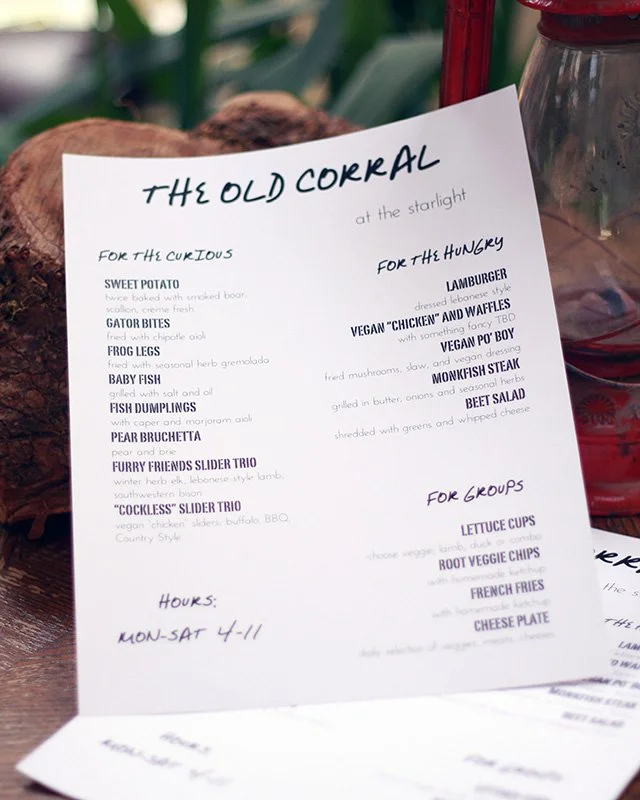 THE OLD CORRAL
at the starlight
FOR THE CURIOUS
SWEET POTATO
twice baked with smoked boar,
scallion, creme fresh
GATOR BITES
fried with chipotle aioli
FROG LEGS
fried with seasonal herb gremolada
BABY FISH
grilled with salt and oil
FISH DUMPLINGS
with caper and marjoram aioli
PEAR BRUCHETTA
pear and brie
FURRY FRIENDS SLIDER TRIO
winter herb elk, lebonese style lamb,
southwestern bison
"COCKLESS" SLIDER TRIO
vegan 'chicken' sliders: buffalo, BBQ,
Country Style
HOURS:
MON-SAT 4-11
FOR THE HUNGRY
LAMBURGER
dressed lebanese style
VEGAN "CHICKEN" AND WAFFLES
with something fancy TBD
VEGAN PO' BOY
fried mushrooms, slaw, and vegan dressing
MONKFISH STEAK
grilled in butter, onions and seasonal herbs
BEET SALAD
shredded with greens and whipped cheese
FOR GROUPS
LETTUCE CUPS
choose veggie, lamb, duck or combo
ROOT VEGGIE CHIPS
with homemade ketchup
FRENCH FRIES
with homemade ketchup
CHEESE PLATE
daily selection of veggies, meats, cheeses
the s
THE H
LAM
MONKFISH STEAK
BEET SALAD
HOURS:
MON-SAT 4-11
FOR GROUPS